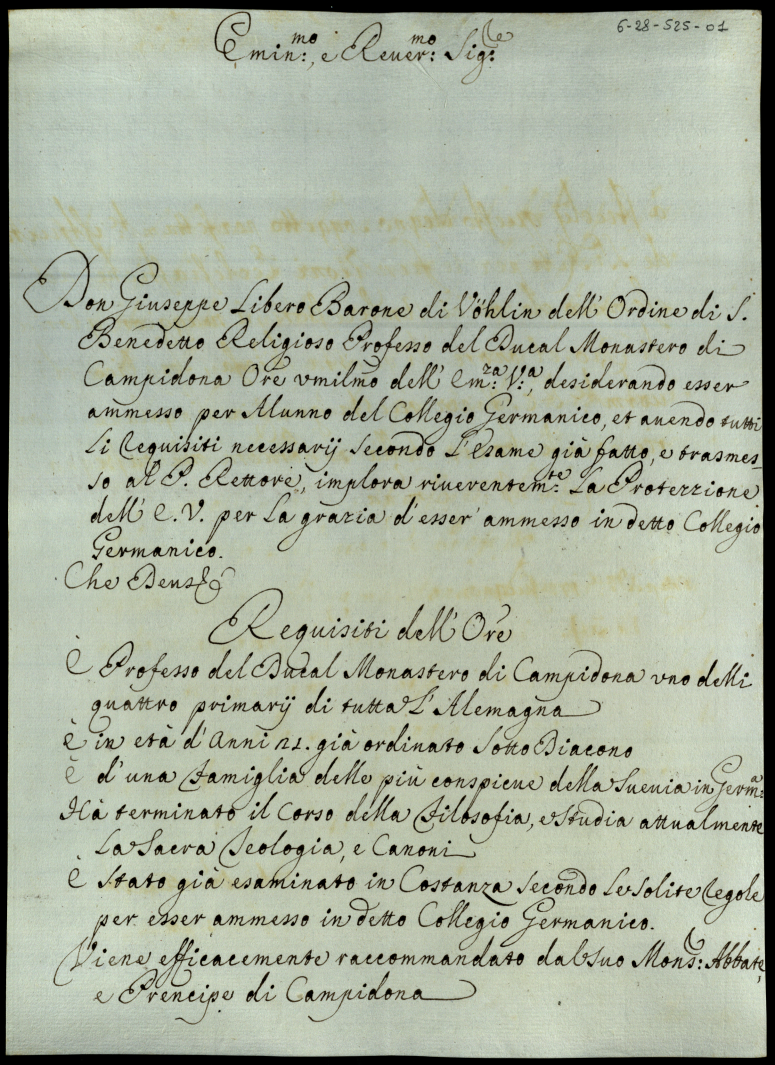 6-28-525-01
Emin:mo, e Reuer:mo Sig:re
Don Giuseppe Libero Barone di Vöhlin dell' Ordine di S.
Benedetto Religioso Professo del Ducal Monastero di
Campidona Ore vmilmo dell' Em:za V:a, desiderando esser
ammesso per Alunno del Collegio Germanico, et auendo tutti
li Requisiti necessarij secondo l'esame già fatto, e trasmes-
so al P. Rettore, implora riuerentem:te la Protezzione
dell' E. V. per la grazia d'esser' ammesso in detto Collegio
Germanico.
Che Deus &
Requisiti dell' Ore
È Professo del Ducal Monastero di Campidona vno delli
quattro primarij di tutta l'Alemagna
È in età d'Anni 21. già ordinato Sotto Diacono
È d'una Famiglia delle più conspicue della Sueuia in Germ:a
Hà terminato il Corso della Filosofia, e studia attualmente
la Sacra Teologia, e Canoni
È stato già esaminato in Costanza secondo le solite regole
per esser ammesso in detto Collegio Germanico.
Viene efficacemente raccommandato dal suo Mons: Abbate,
e Prencipe di Campidona